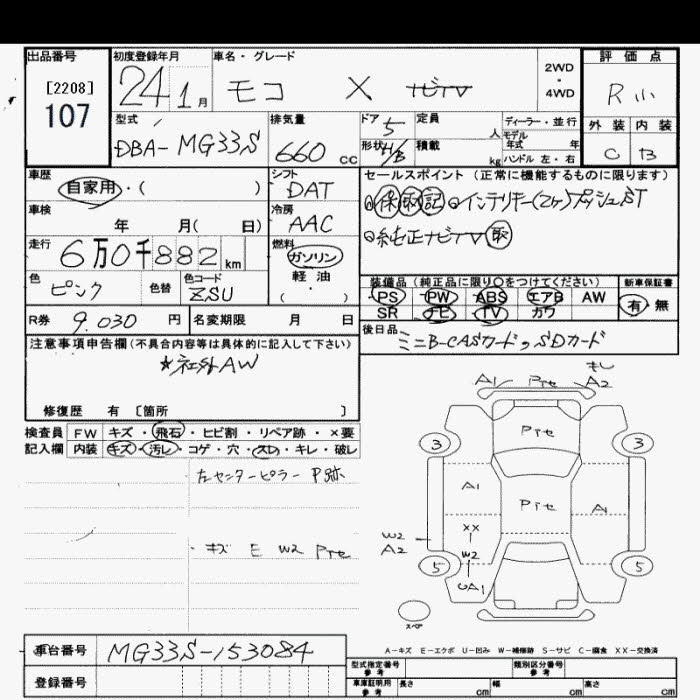 出品番号 初度登録年月 車名・グレード 評価点
[2208] 107 24 1月 モコ X ナビTV 2WD・4WD R小
型式 排気量 ドア 5 定員 人 ディーラー・並行 外装 内装
DBA-MG33S 660cc 形状 H/B 積載 kg モデル年式 年 ハンドル 左・右 C B
車歴 シフト セールスポイント（正常に機能するものに限ります）
自家用・（ ） DAT 保取記 インテリキー(2ヶ)プッシュST
車検 冷房 純正ナビTV取
年 月（ 日） AAC
走行 燃料
6万0千882km ガソリン
軽油
（ ・ ）
装備品（純正品に限り○をつけてください） 新車保証書
色 色替 色コード PS PW ABS エアB AW 有・無
ピンク ZSU SR ナビ TV カワ
R券 9.030円 名変期限 月 日 後日品
ミニB-CASカード，SDカード
注意事項申告欄（不具合内容等は具体的に記入して下さい）
★社外AW
修復歴 有〔箇所 〕
検査員 FW キズ・飛石・ヒビ割・リペア跡・×要
記入欄 内装 キズ・汚レ・コゲ・穴・スレ・キレ・破レ
左センターピラー P跡
・キズ E W2 Pte
A1 Pte A2
Pte
3 3
A1 Pte A1
XX
W2
A2
W2
5 5
UA1
スペア
A－キズ E－エクボ U－凹み W－補修跡 S－サビ C－腐食 XX－交換済
車台番号 MG33S-153084
登録番号
型式指定番号 参考 類別区分番号 参考
車庫証明用 参考 長さ cm 幅 cm 高さ cm